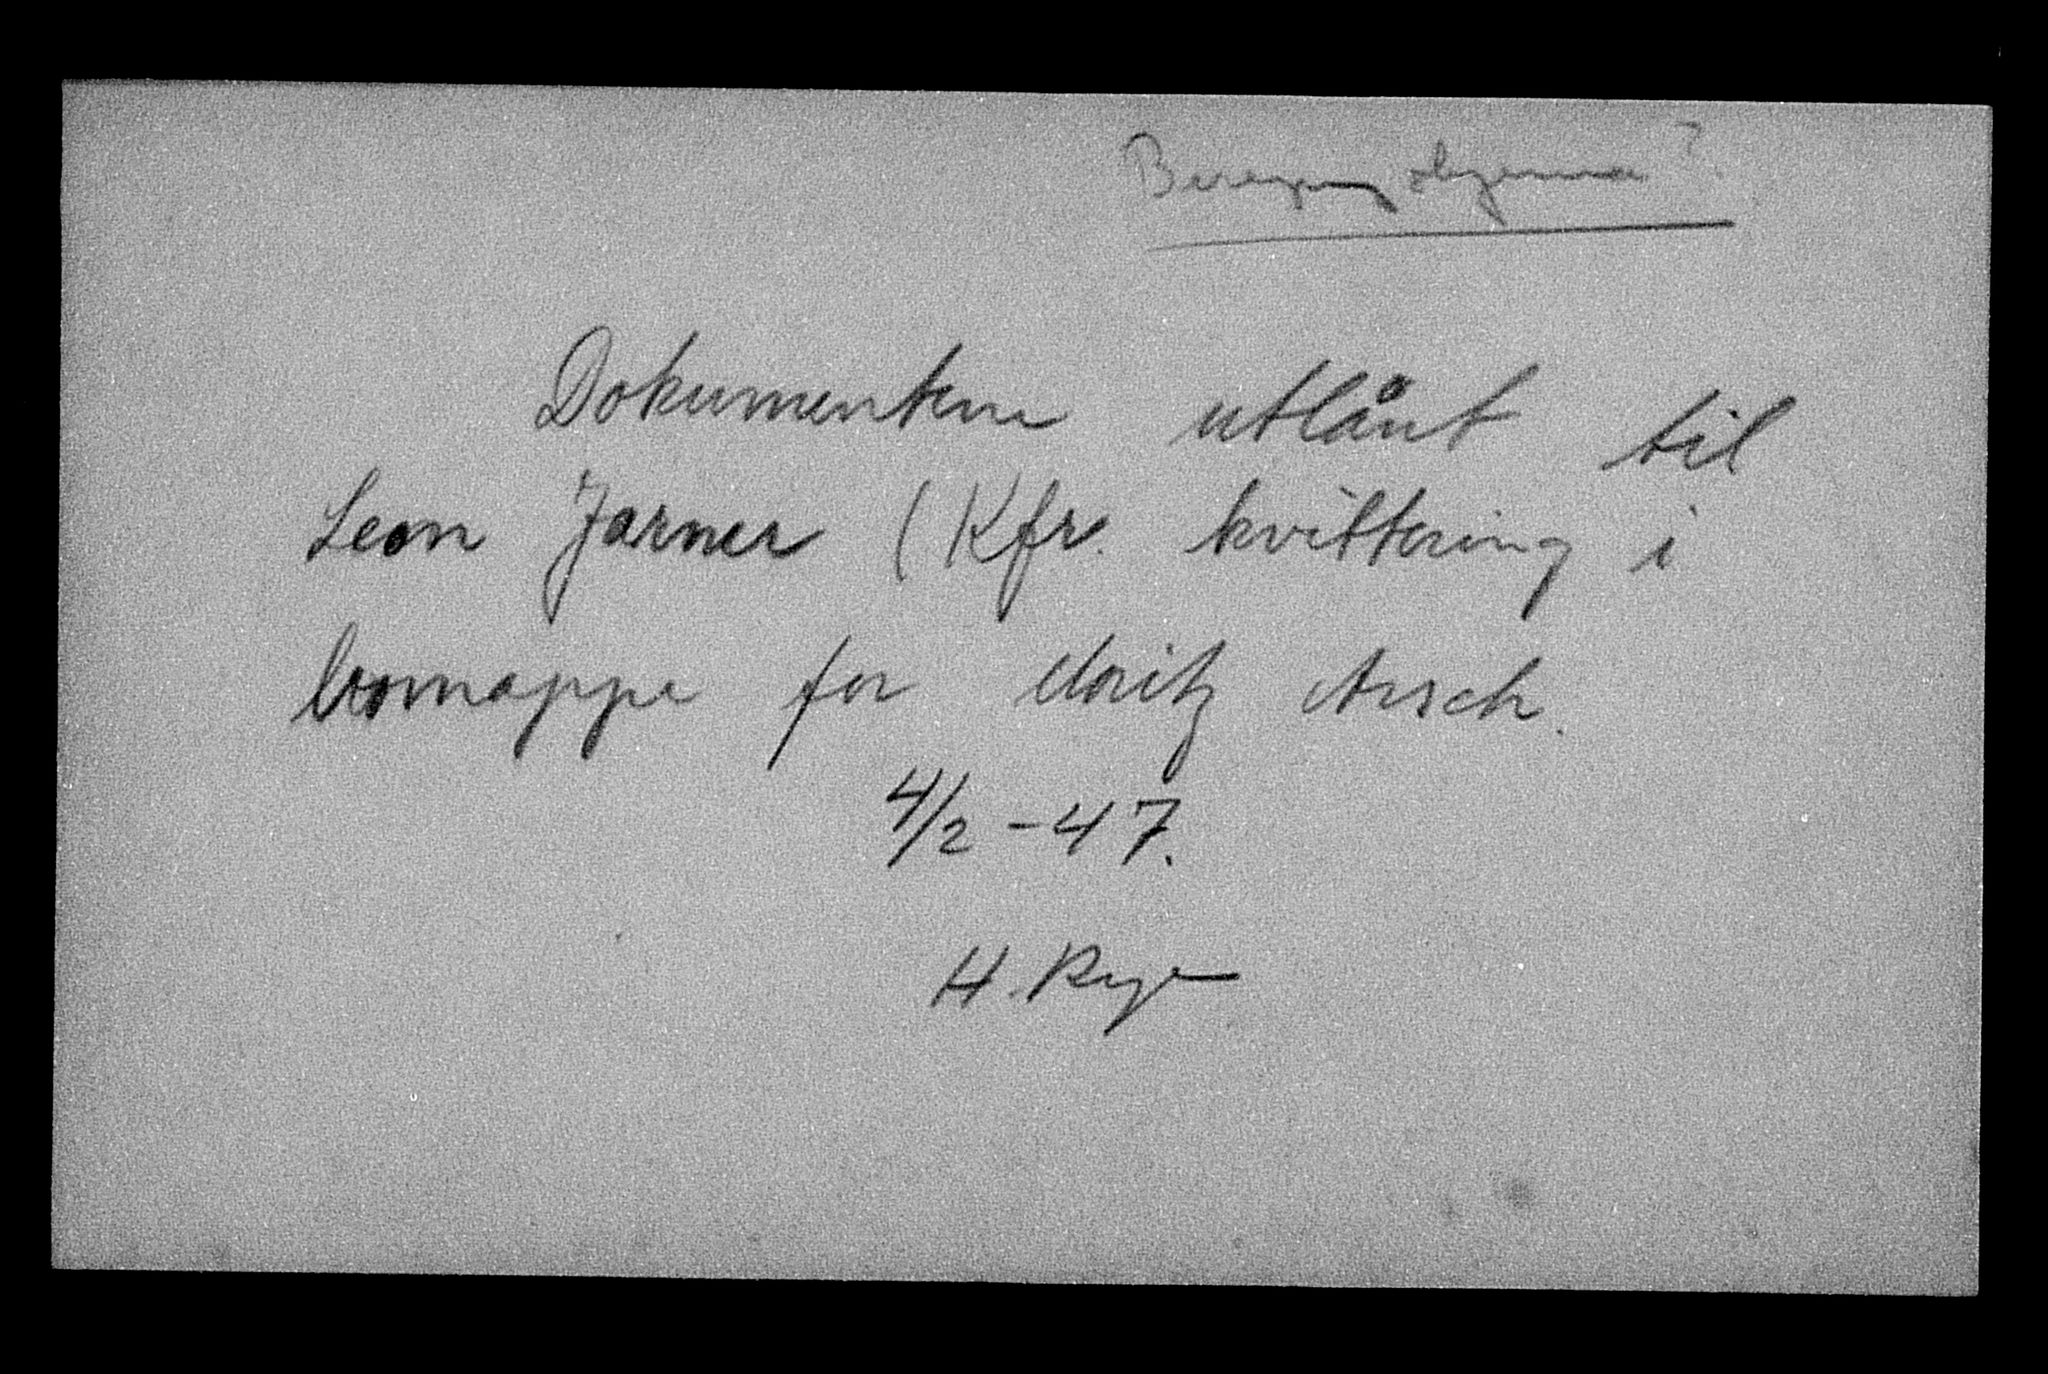 Dokumentene utlånt til
Leon Jarner (Kfr. kvittering i
bomappe for Moritz Arsch.
4/2-47.
H. Rye